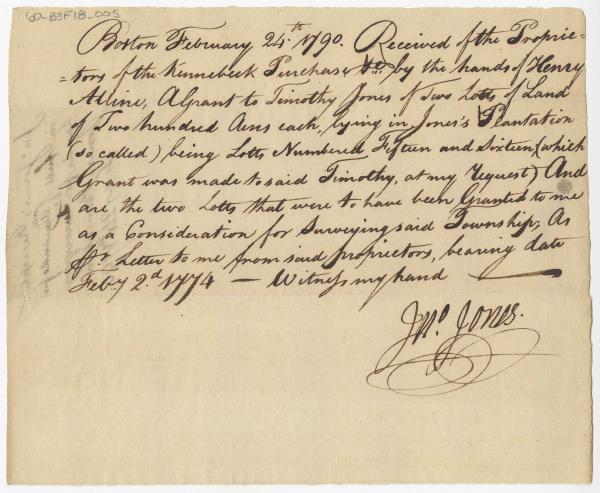 60-B3F18-005
Boston February 24.th 1790. Received of the Proprie-
-tors of the Kennebeck Purchase &c. by the hands of Henry
Alline, A Grant to Timothy Jones of Two Lotts of Land
of Two hundred Acres each, lying in Jones's Plantation
(so called) being Lotts Numbered Fifteen and Sixteen, (which
Grant was made to said Timothy, at my request) And
are the two Lotts that were to have been Granted to me
as a Consideration for Surveying said Township, As
Pr. Letter to me from said proprietors, bearing date
Feby. 2.d 1774 — Witness my hand —
Jno. Jones.